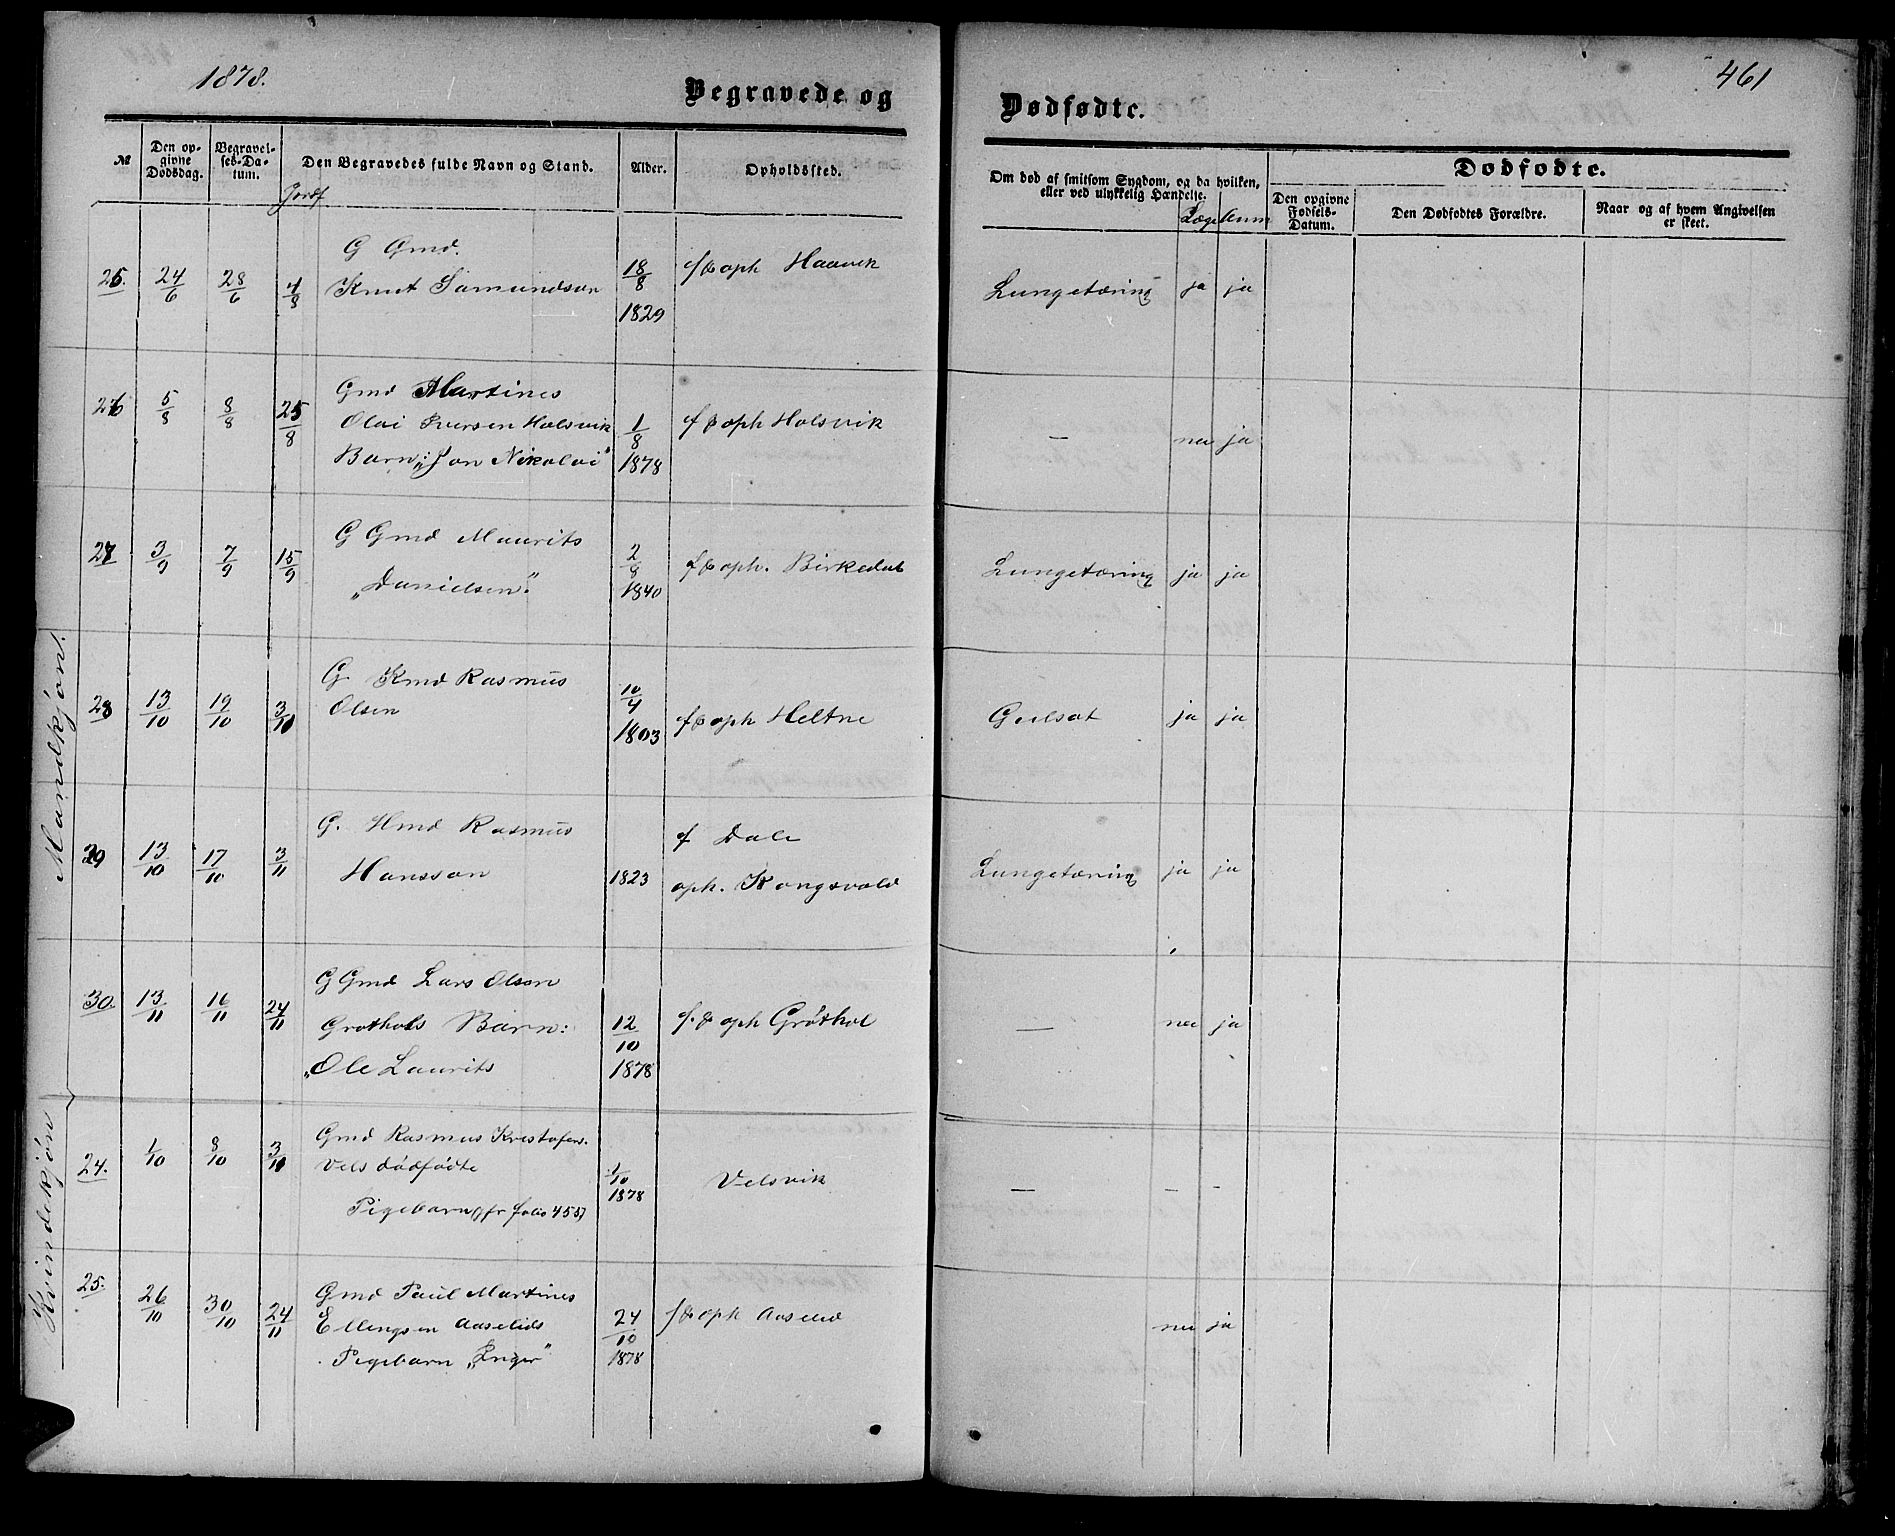 1878.
Begravede og
Dødfødte.
461
№
Den op-
givne
Dødsdag.
Begravel-
ses-Da-
tum.
Jordf
Den Begravedes fulde Navn og Stand.
Alder.
Opholdssted.
Om død af smitsom Sygdom, og da hvilken,
eller ved ulykkelig Hændelse.
Læge
Anm
Dødfødte.
Den opgivne
Fødsels-
Datum.
Den Dødfødtes Forældre.
Naar og af hvem Angivelsen
er skeet.
Mandkjøn.
25. 24/6 28/6 4/8
G Gmd.
Knut Samundson
18/8 1829
f & oph Haavik
Lungetæring ja ja
26 5/8 8/8 25/8
Gmd Martines
Olai Iversen Holsvik
Barn: „Jon Nikolai"
1/8 1878
f & oph Holsvik
— nei ja
27 3/9 7/9 15/9
G Gmd Maurits
„Danielsen."
2/8 1840
f & oph. Birkedal
Lungetæring ja ja
28 13/10 19/10 3/11
G. Kmd Rasmus
Olsen
10/4 1803
f & oph Heltne
Gulsot ja ja
29 13/10 17/10 3/11
G. Hmd Rasmus
Hansson
1823
f Dale
oph. Kongsvold
Lungetæring ja ja
30. 13/11 16/11 24/11
G Gmd Lars Olsen
Grøthols Barn:
„Ole Laurits
12/10 1878
f. & oph Grøthol
— nei ja
Kvindekjøn
24. 1/10 8/10 3/11
Gmd Rasmus Kristofers.
Vels dødfødte
Pigebarn (jfr folio 455)
1/10 1878
Velsvik
— - -
25. 26/10 30/10 24/11
Gmd Paul Martines
Ellingsen Aaselids
Pigebarn „Inger"
24/10 1878
f & oph Aaselid
nei ja